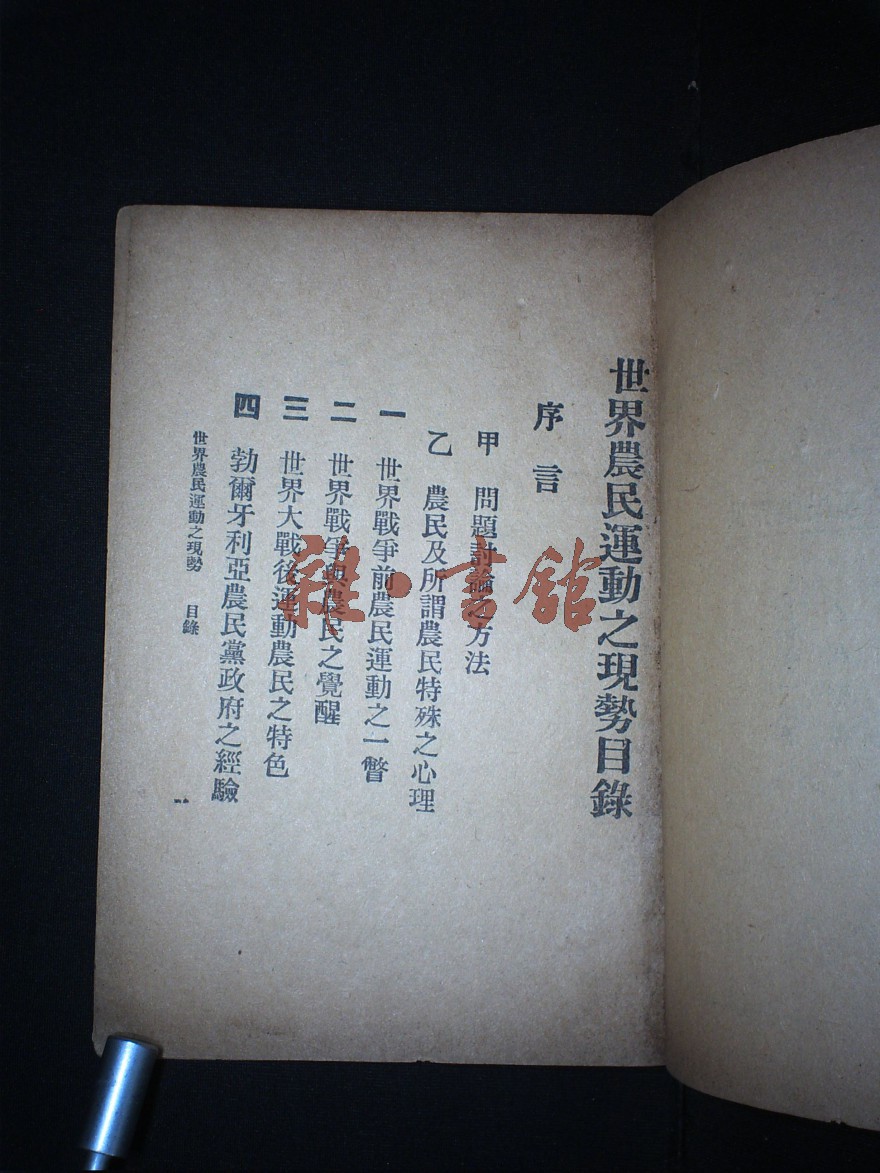 世界農民運動之現勢目錄
序言
甲 問題討論之方法
乙 農民及所謂農民特殊之心理
一 世界戰爭前農民運動之一瞥
二 世界戰爭與農民之覺醒
三 世界大戰後運動農民之特色
四 勃爾牙利亞農民黨政府之經驗
世界農民運動之現勢 目錄
一
雜·書館